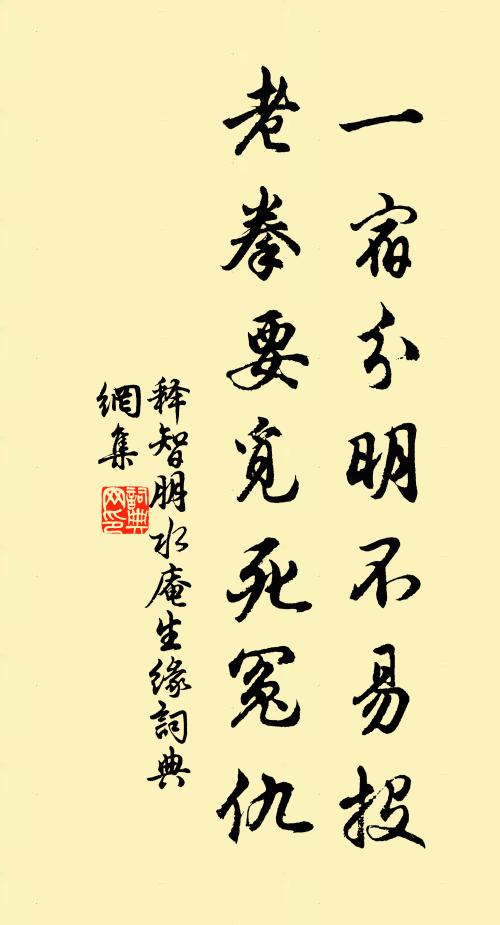 一宿分明不易投
老拳要覓死冤仇
释智朋水庵生缘詞典
網集
詞典
网印